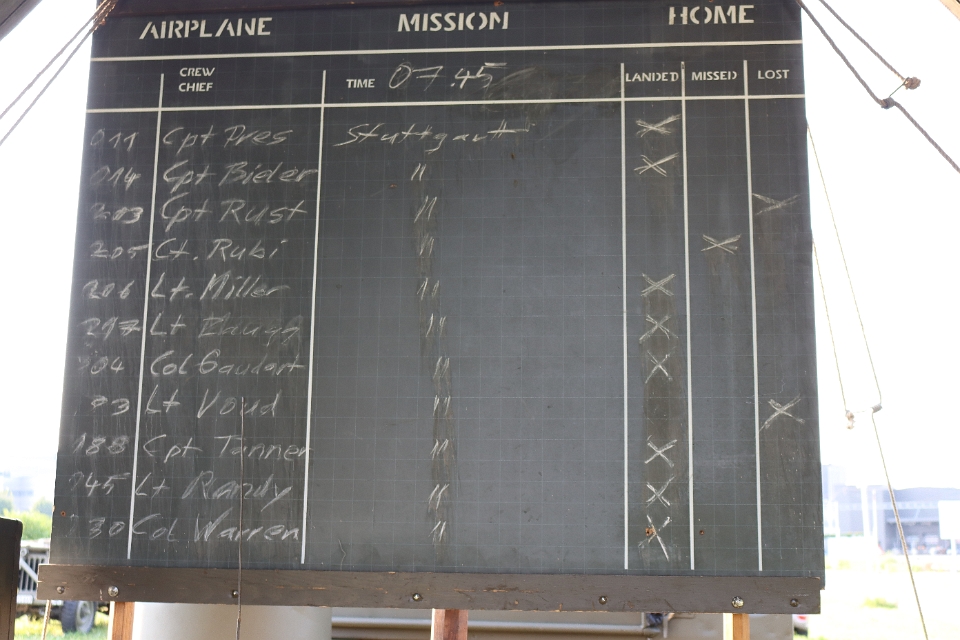 AIRPLANE MISSION HOME
CREW CHIEF TIME 07.45 LANDED MISSED LOST
011 Cpt Pres Stuttgart X
014 Cpt Bider " X
203 Cpt Rust " X
205 Ct. Rubi " X
206 Lt. Miller " X
217 Lt " X
04 Col Gaudart " X
93 Lt Voud " X
188 Cpt Tanner " X
145 Lt Randy " X
30 Col Warren " X